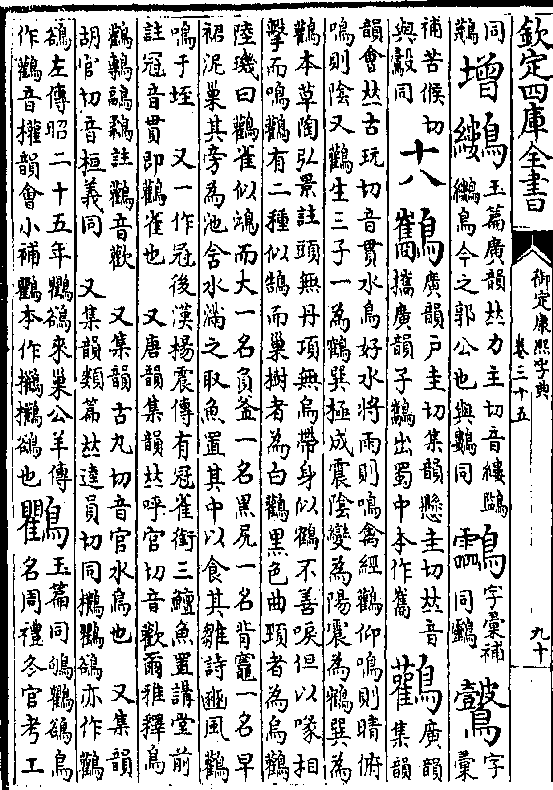 欽定四庫全書
御定康熙字典
卷三十五
九十
同鷬 增 䍚鳥 玉篇廣韻𠀤力主切音縷鷜鳥今之郭公也與鷜同 字彙補同鸘 字彙
補苦候切與鷇同 十八 鑴 廣韻戸圭切集韻懸圭切𠀤音攜廣韻子鑴出蜀中本作巂 鸛 廣韻集韻
韻會𠀤古玩切音貫水鳥好水將雨則鳴禽經鸛仰鳴則晴俯
鳴則陰又鸛生三子一為鶴巽極成震陰變為陽震為鶴巽為
鸛本草陶弘景註頭無丹項無烏帶身似鶴不善唳但以喙相
擊而鳴鸛有二種似鵠而巢樹者為白鸛黑色曲頸者為烏鸛
陸璣曰鸛雀似鴻而大一名負釜一名黑尻一名背竈一名早
裙泥巢其旁為池含水滿之取魚置其中以食其雛詩豳風鸛
鳴于垤 又一作冠後漢楊震傳有冠雀銜三鱣魚置講堂前
註冠音貫即鸛雀也 又唐韻集韻𠀤呼官切音歡爾雅釋鳥
鸛鷒鶝鶔註鸛音歡 又集韻古丸切音官水鳥也 又集韻
胡官切音桓義同 又集韻類篇𠀤逵員切同𪈀鸜鵒亦作鸛
鵒左傳昭二十五年鸜鵒來巢公羊傳作鸛音權韻會小補鸜本作𪈀𪈀鵒也 鸜 玉篇同鴝鸜鵒鳥名周禮冬官考工